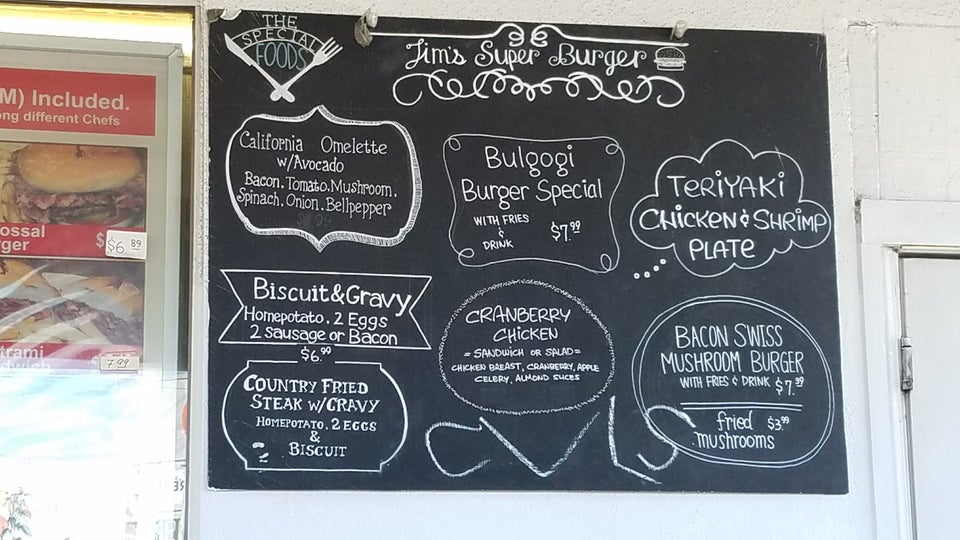 M) Included.
ong different Chefs
ossal
rger
$6 89
trami
dwich
7 99
THE
SPECIAL
FOODS
Jim's Super Burger
California Omelette
w/Avocado
Bacon, Tomato, Mushroom,
Spinach, Onion, Bellpepper
Bulgogi
Burger Special
WITH FRIES
&
DRINK
$7.99
TERiYAKi
CHiCKEN & SHRiMP
PLATE
Biscuit&Gravy
Homepotato, 2 Eggs
2 sausage or Bacon
$6.99
CRANBERRY
CHiCKEN
= SANDWICH OR SALAD =
CHICKEN BREAST, CRANBERRY, APPLE
CELERY, ALMOND SLICES
BACON SWISS
MUSHROOM BURGER
WITH FRIES & DRINK $7.39
fried $3.99
mushrooms
COUNTRY FRIED
STEAK W/GRAVY
HOMEPOTATO, 2 EGGS
&
BISCUIT